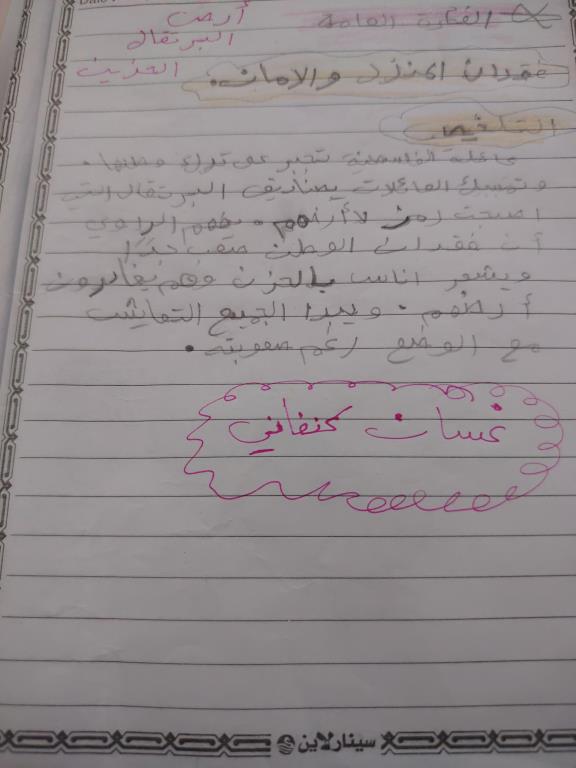 الفكرة العامة
أرض
البرتقال
الحزين
فقدان المنزل والامان.
التلخيص
عائلة الفلسطينية تجبر على ترك وطنها.
وتمسك العائلات بصناديق البرتقال التي
اصبحت رمز لأرضهم. يفهم الراوي
أن فقدان الوطن صعب جدًا
ويشعر اناس بالحزن وهم يغادرون
أرضهم. ويبدا الجميع التعايش
مع الوضع رغم صعوبته.
غسان كنفاني
سينارلاين